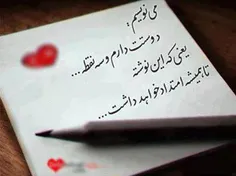 می نویسم :
دوستت دارم و سه نقطه ...
یعنی که این نوشته
تا همیشه امتداد خواهد داشت ...